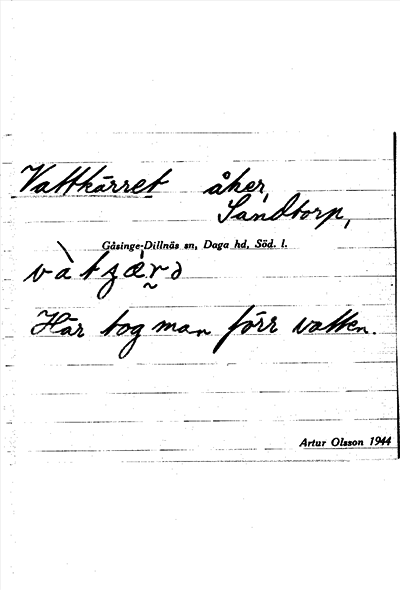 Vattkärret åker,
Sandtorp,
Gåsinge-Dillnäs sn, Daga hd, Söd. l.
Här tog man förr vatten.
Artur Olsson 1944